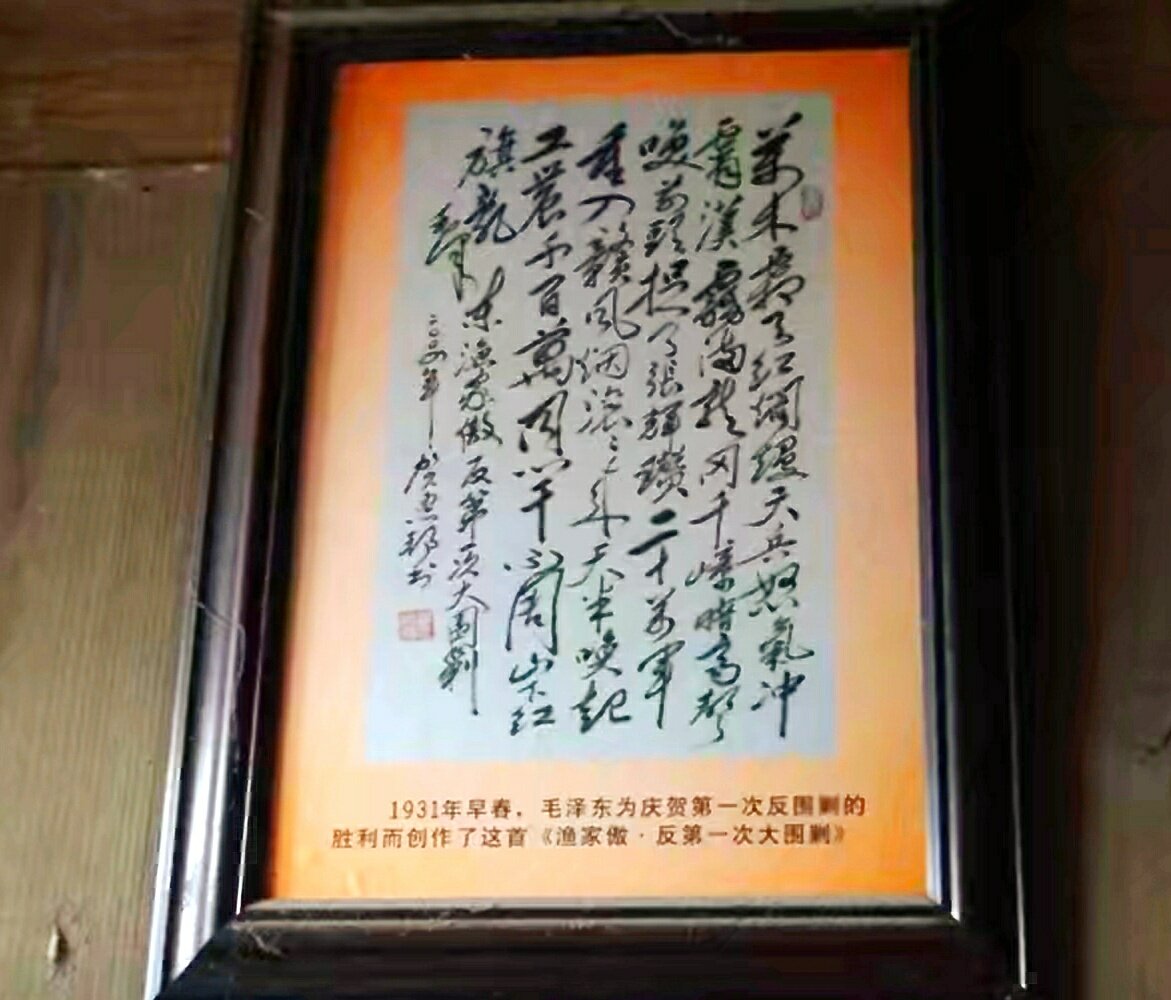 萬木霜天红爛漫天兵怒氣冲
霄漢霧满龙冈千嶂暗齐聲
唤前頭捉了張輝瓚二十万軍
重入贛风烟滚々来天半唤起
工農千百萬同心干不周山下红
旗乱
东渔家傲反第一次大围剿
年
书
1931年早春，毛泽东为庆贺第一次反围剿的
胜利而创作了这首《渔家傲·反第一次大围剿》